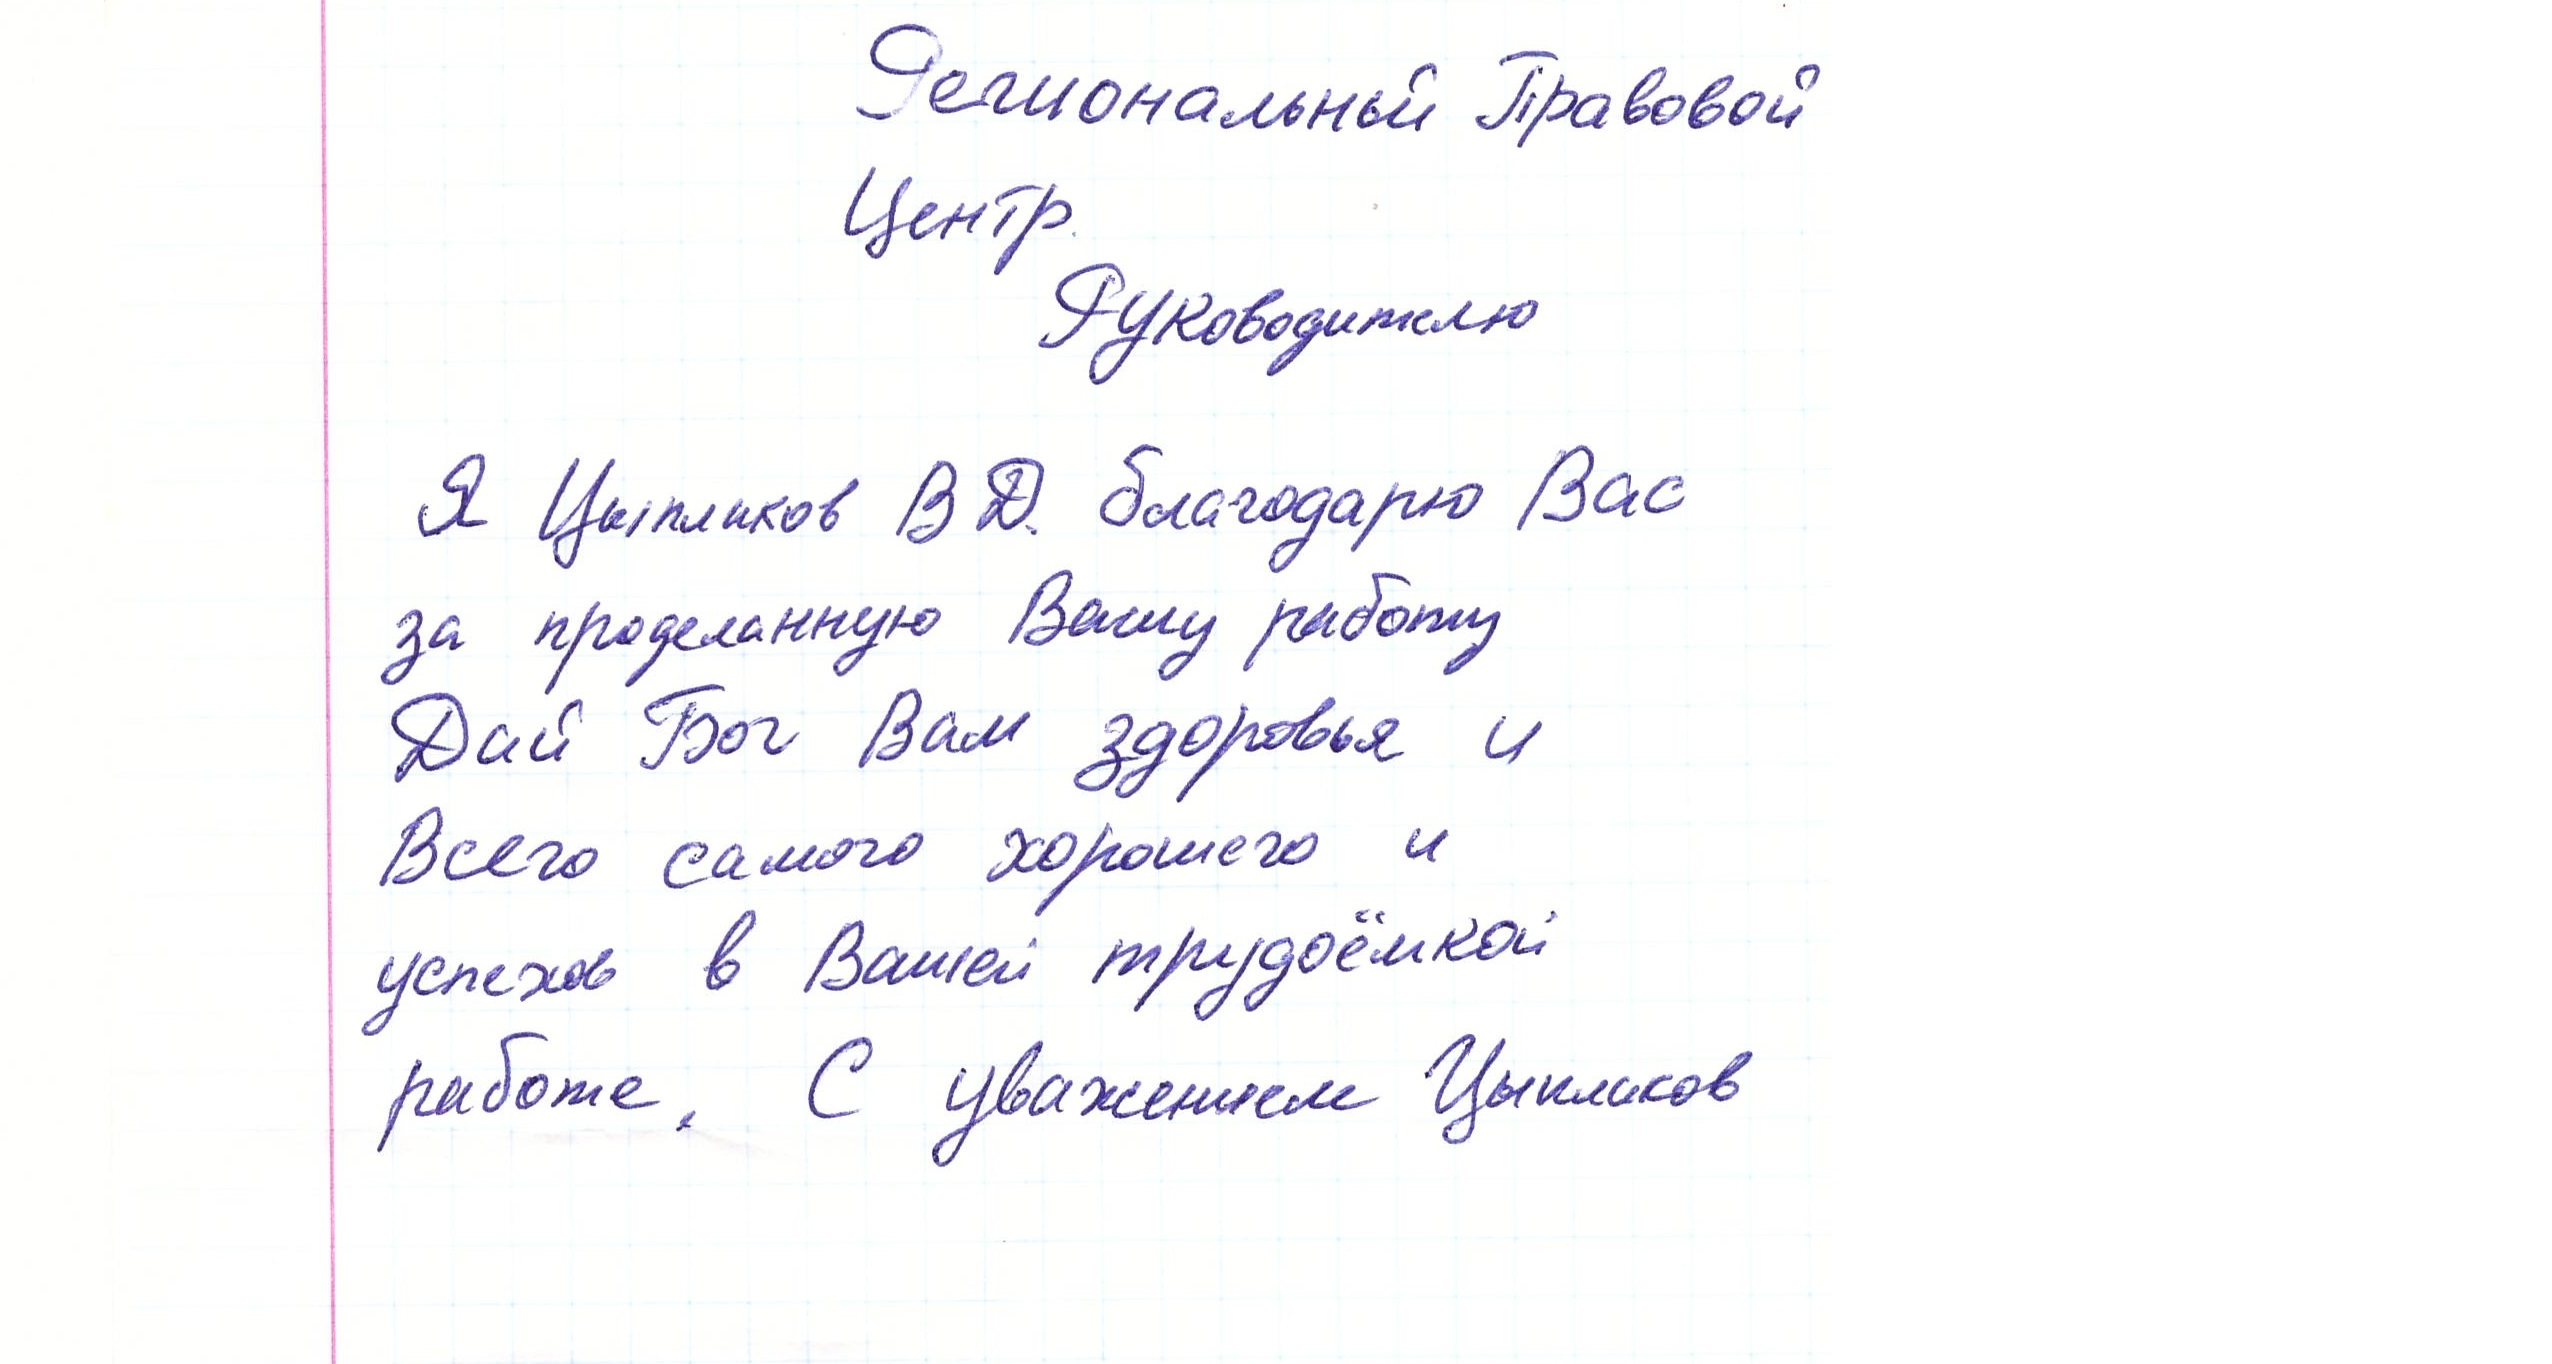 Региональный Правовой
Центр.
Руководителю
Я Цыпликов В Д. благодарю Вас
за проделанную Вашу работу
Дай Бог Вам здоровья и
Всего самого хорошего и
успехов в Вашей трудоёмкой
работе. С уважением Цыпликов